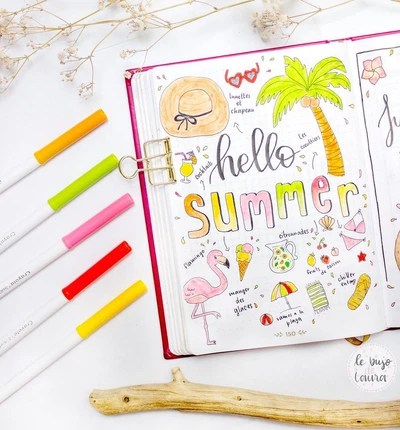 lunettes
et
chapeau
hello
les
cocotiers
cocktails
summer
flamingo
citronnades
fruits de saison
manger
des
glaces
chiller
samos à la
plage
150
le bujo
Laura